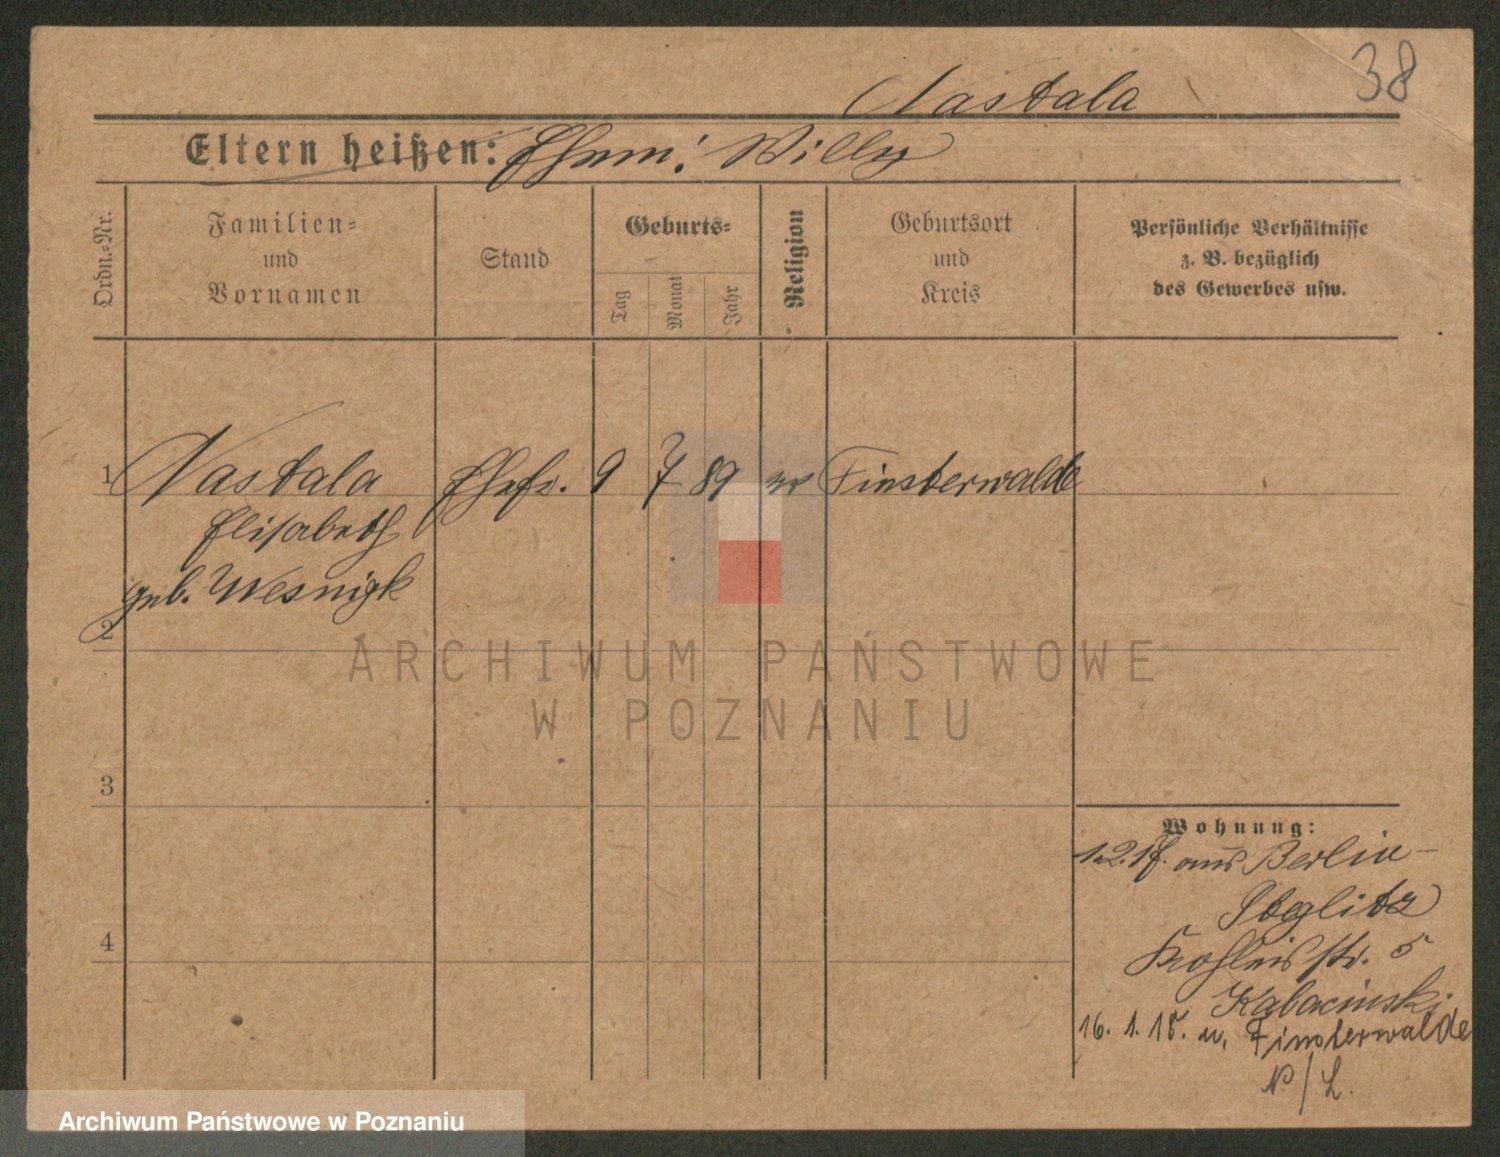 38
Nastala
Eltern heißen: Ehem: Willy
Ordn.=Nr.
Familien=
und
Vornamen
Stand
Geburts=
Tag
Monat
Jahr
Religion
Geburtsort
und
Kreis
Persönliche Verhältnisse
z. B. bezüglich
des Gewerbes usw.
1 Nastala Ehefr. 9 7 89 ev Finsterwalde
Elisabeth
geb. Wesnigk
2
3
4
Wohnung:
1.2.17. aus Berlin-
Steglitz
str. 5
Kabacinski
16. 1. 18. n. Finsterwalde
N/L.
ARCHIWUM PAŃSTWOWE
W POZNANIU
Archiwum Państwowe w Poznaniu